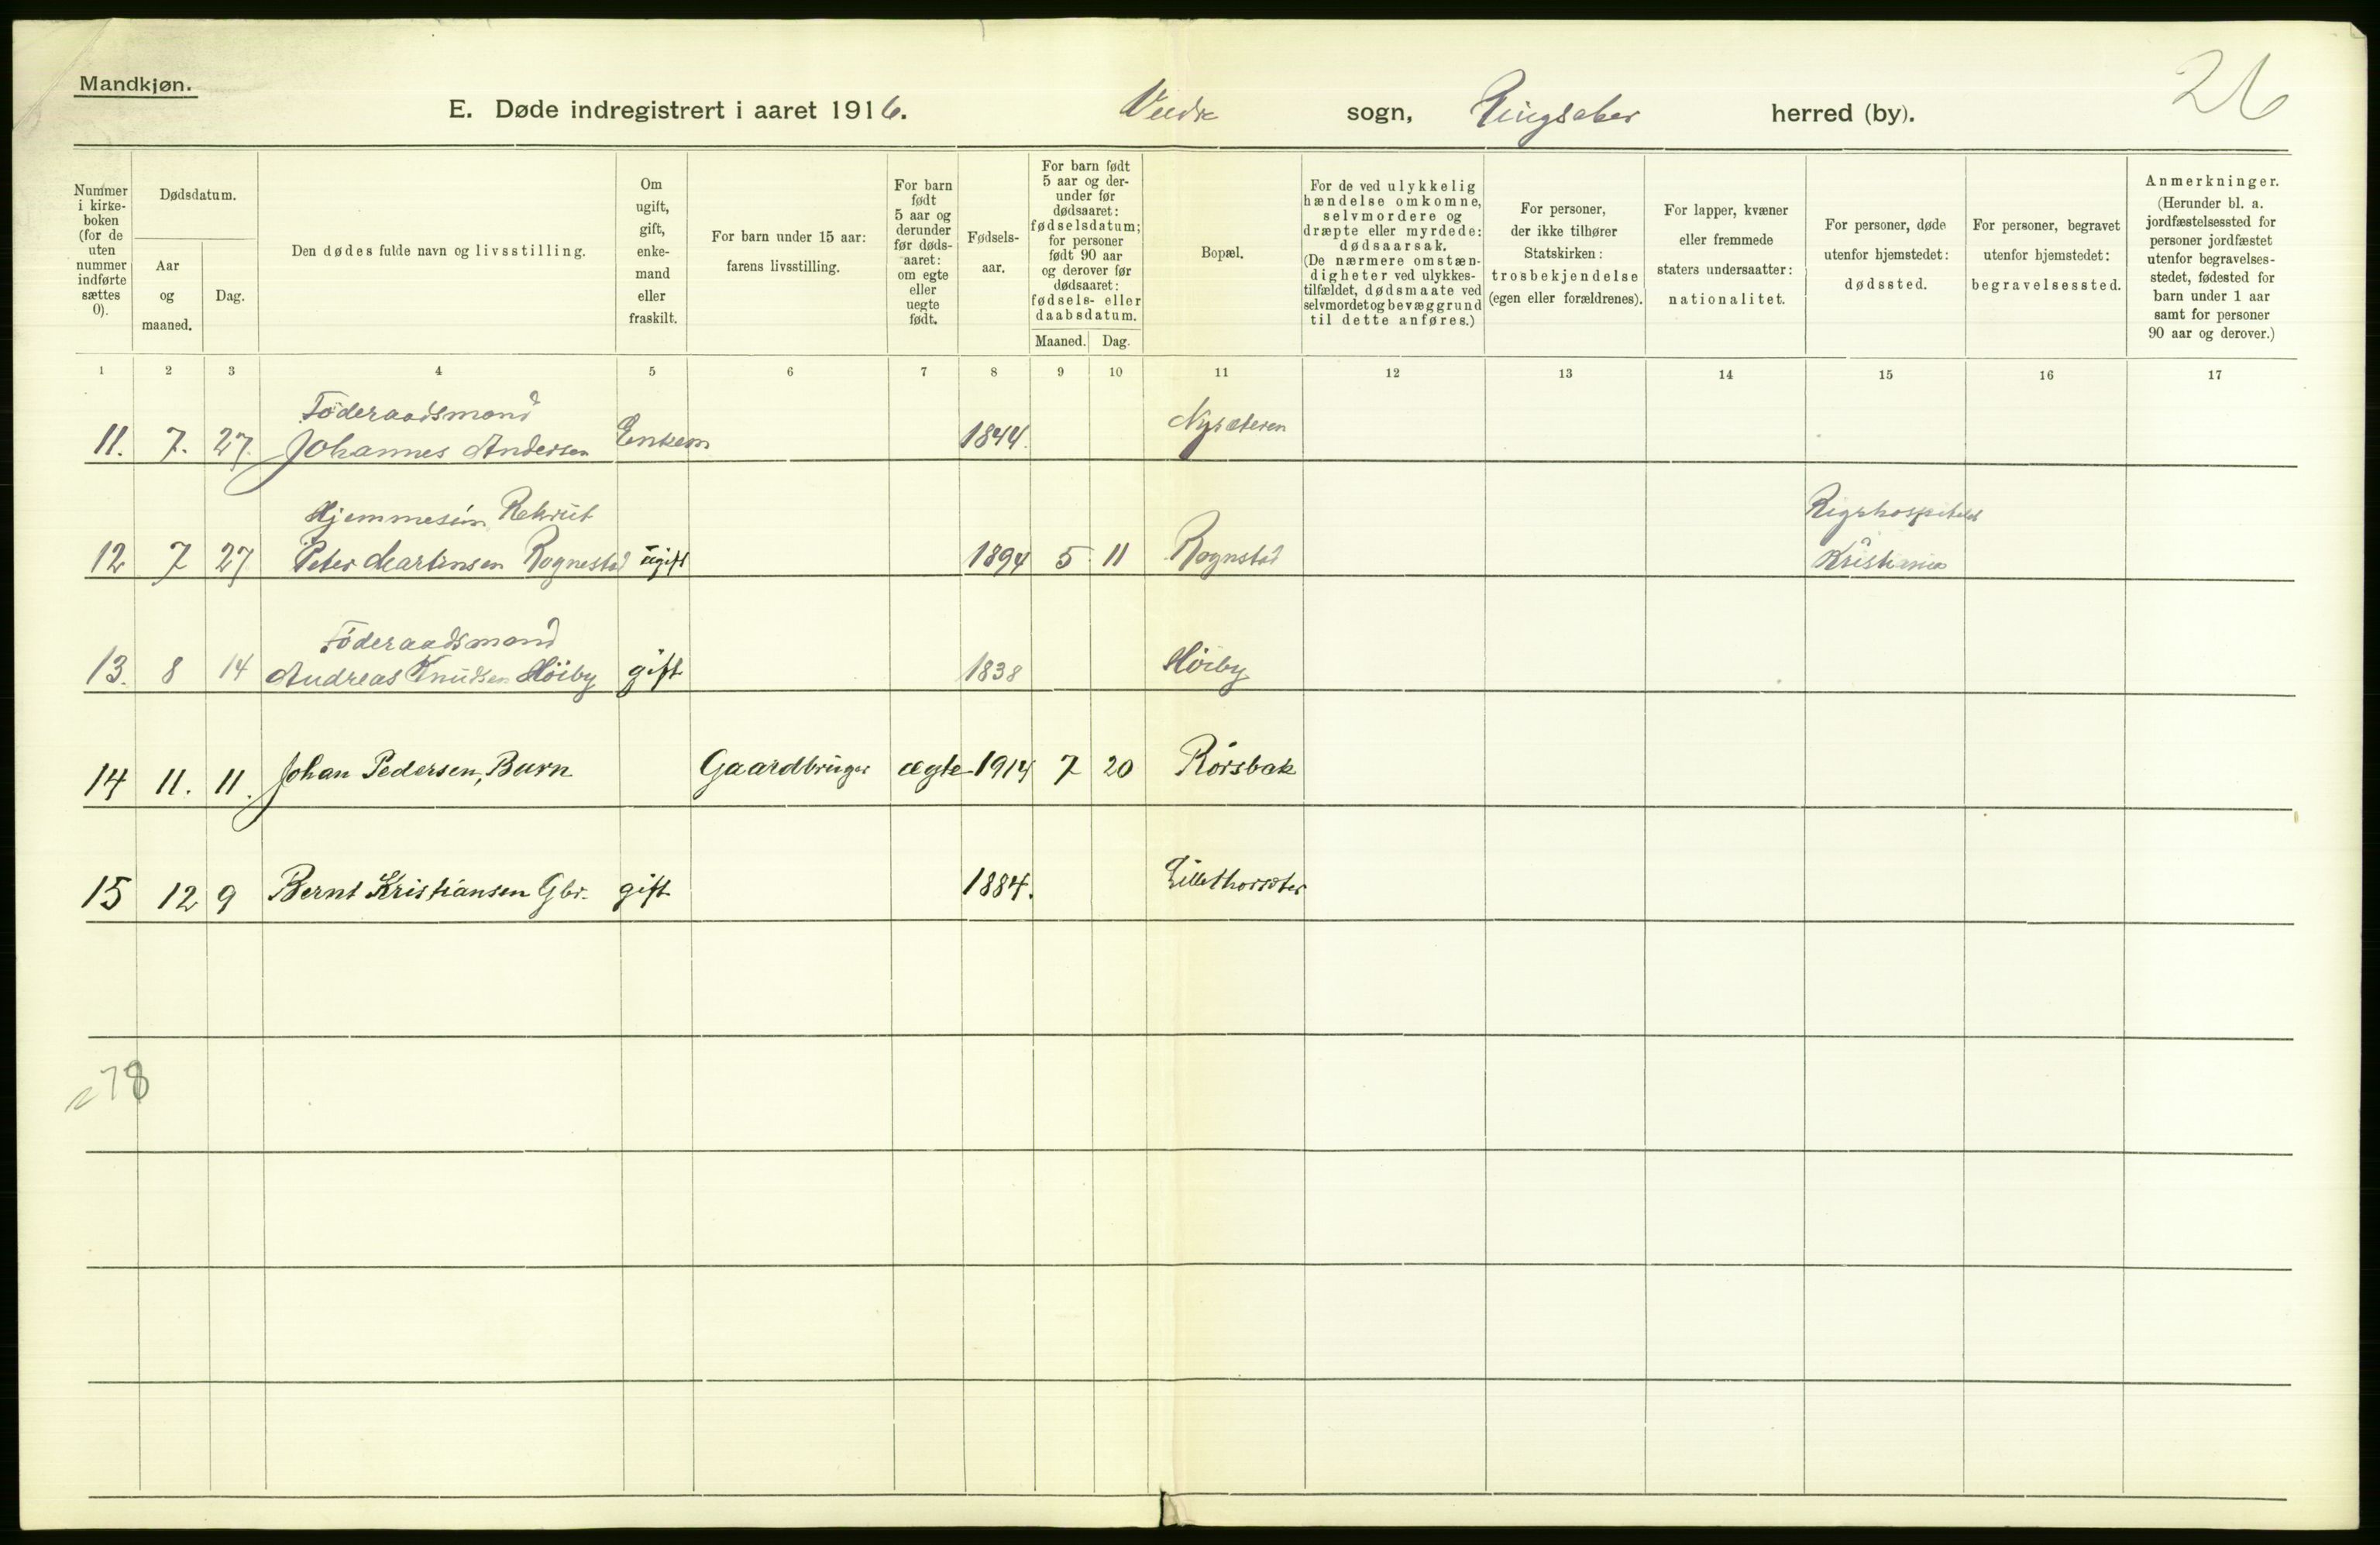 Mandkjøn.
E. Døde indregistrert i aaret 1916. sogn, Ringsaker herred (by).
26
Nummer i kirke- boken (for de uten nummer indførte sættes 0).
Dødsdatum.
Aar og maaned.
Dag.
Den dødes fulde navn og livsstilling.
Om ugift, gift, enke- mand eller fraskilt.
For barn under 15 aar: farens livsstilling.
For barn født 5 aar og derunder før døds- aaret: om egte eller uegte født.
Fødsels- aar.
For barn født 5 aar og der- under før dødsaaret: fødselsdatum; for personer født 90 aar og derover før dødsaaret: fødsels- eller daabsdatum.
Maaned. Dag.
Bopæl.
For de ved ulykkelig hændelse omkomne, selvmordere og dræpte eller myrdede: dødsaarsak. (De nærmere omstæn- digheter ved ulykkes- tilfældet, dødsmaate ved selvmordet og bevæggrund til dette anføres.)
For personer, der ikke tilhører Statskirken: trosbekjendelse (egen eller forældrenes).
For lapper, kvæner eller fremmede staters undersaatter: nationalitet.
For personer, døde utenfor hjemstedet: dødssted.
For personer, begravet utenfor hjemstedet: begravelsessted.
Anmerkninger. (Herunder bl. a. jordfæstelsessted for personer jordfæstet utenfor begravelses- stedet, fødested for barn under 1 aar samt for personer 90 aar og derover.)
1 2 3 4 5 6 7 8 9 10 11 12 13 14 15 16 17
Föderaadsmand
11. 7. 27. Johannes Andersen Enkem 1844. Nysæteren
Hjemmesön, Rekrut Rigshospitalet
12 7 27 Peter Martinsen Rognestad ugift 1894 5 11 Rognstad Kristiania
Föderaadsmand
13. 8 14 Andreas Knudsen Höiby gift 1838 Höiby
14 11. 11. Johan Pedersen, Barn Gaardbruger ægte 1914 7 20 Rörsbak
15 12 9 Bernt Kristiansen Gbr. gift 1884.
78